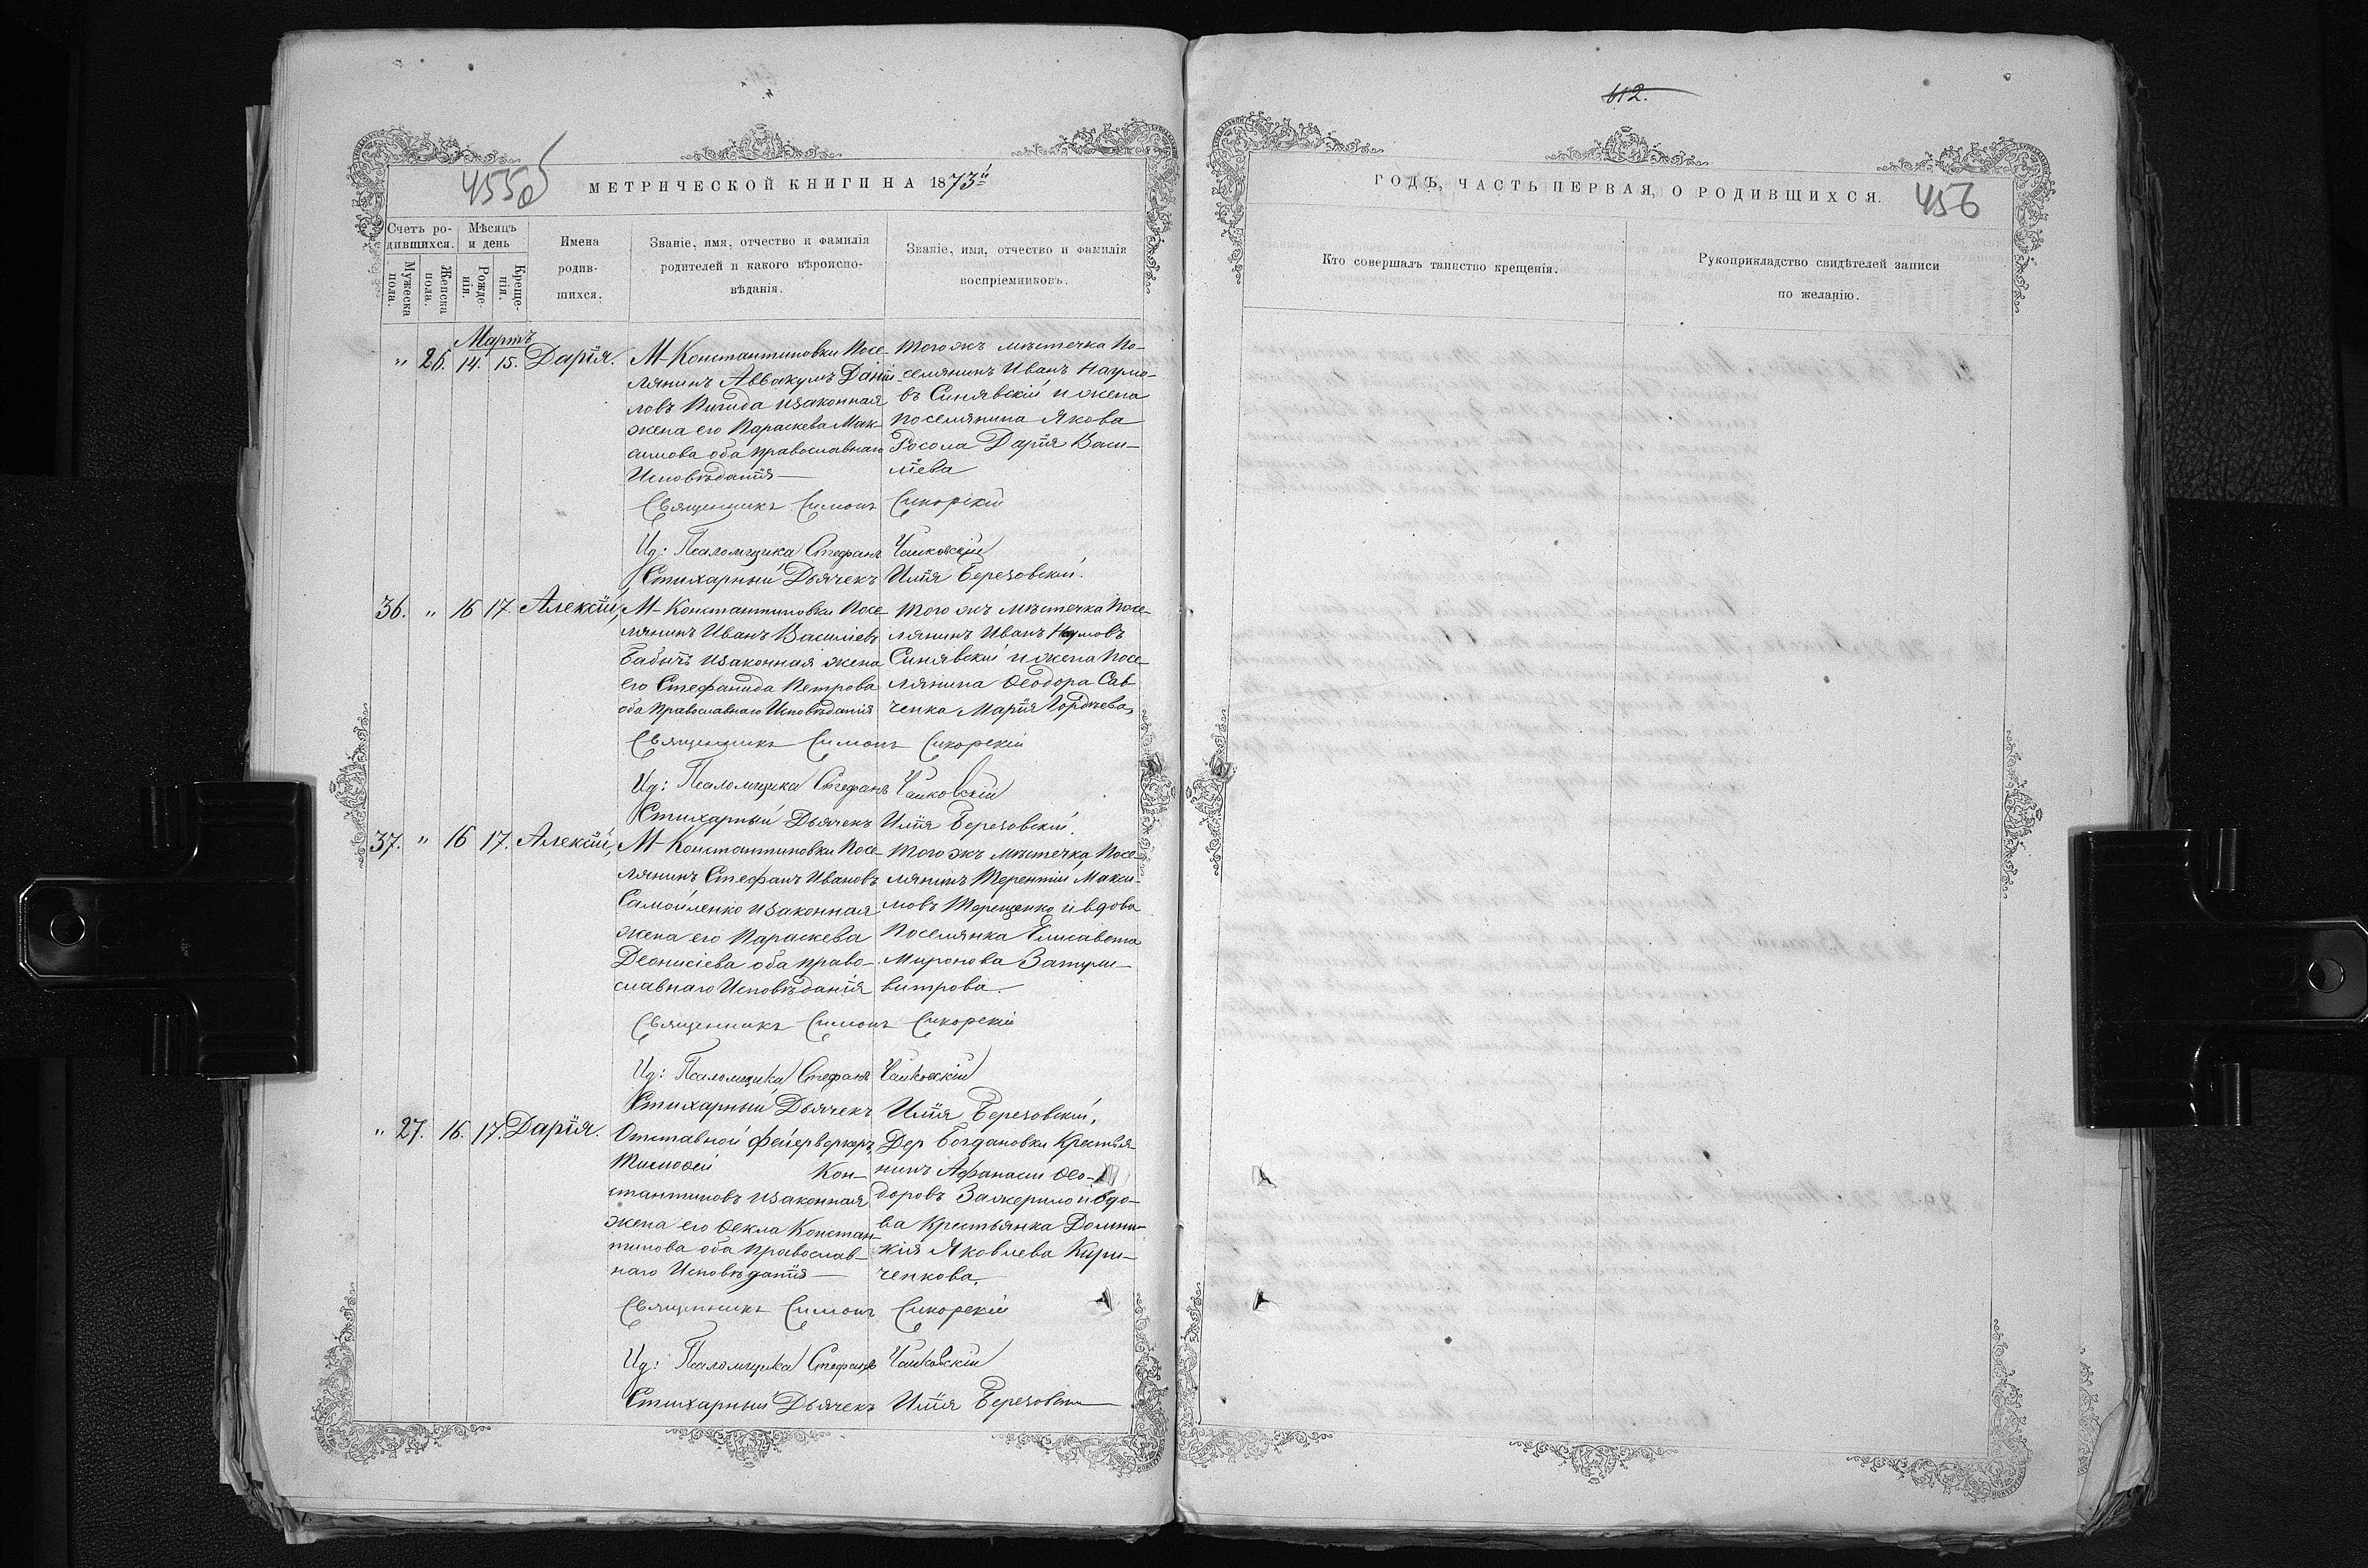 612.
455об
МЕТРИЧЕСКОЙ КНИГИ НА 1873й
ГОДЪ, ЧАСТЬ ПЕРВАЯ, О РОДИВШИХСЯ.
456
Счетъ ро-
дившихся.
Мужеска
пола.
Женска
пола.
Мѣсяцъ
и день
Рожде-
нія.
Креще-
нія.
Имена
родив-
шихся.
Званіе, имя, отчество и фамилія
родителей и какого вѣроиспо-
вѣданія.
Званіе, имя, отчество и фамилія
воспріемниковъ.
Кто совершалъ таинство крещенія.
Рукоприкладство свидѣтелей записи
по желанію.
Мартъ
" 26. 14. 15. Дарія.
М- Константиновки Посе-
лянинъ Аввакумъ Даніи-
ловъ изаконная
жена его Параскева Мак-
симова оба православнаго
Исповѣданія
Того жъ мѣстечка По-
селянинъ Иванъ Наумо-
въ Синявскій и жена
поселянина Якова
Росола Дарія Васи-
ліева
Священникъ Симонъ Сикорскій
Ид: Псаломщика Стефанъ Чайковскій
Стихарный Дьячекъ Илія Березовскій.
36. " 16 17. Алексій,
М- Константиновки Посе-
лянинъ Иванъ Василіевъ
Бабичъ изаконная жена
его Стефанида Петрова
оба православнаго Исповѣданія
Того жъ мѣстечка Посе-
лянинъ Иванъ Наумовъ
Синявскій и жена Посе-
лянина Ѳеодора Сав-
ченка Марія Гордѣева,
Священникъ Симонъ Сикорскій
Ид: Псаломщика Стефанъ Чайковскій
Стихарный Дьячекъ Илія Березовскій.
37. " 16 17. Алексій,
М- Константиновки Посе-
лянинъ Стефанъ Ивановъ
Самойленко изаконная
жена его Параскева
Деонисіева оба право-
славнаго Исповѣданія
Того жъ мѣстечка, Посе-
лянинъ Терентій Макси-
мовъ Терещенко и вдова
Поселянка Елисавета
Миронова Затули-
витрова.
Священникъ Симонъ Сикорскій
Ид: Псаломщика Стефанъ Чайковскій
Стихарный Дьячекъ Илія Березовскій,
" 27. 16. 17. Дарія.
Отставной фейерверкеръ
Тимоѳей Кон-
стантиновъ изаконная
жена его Ѳекла Констан-
тинова оба православ-
наго Исповѣданія
Дер Богдановки Крестья-
нинъ Афанасій Ѳео-
доровъ и вдо-
ва Крестьянка Домни-
кія Яковлева Кири-
ченкова.
Священникъ Симонъ Сикорскій
Ид: Псаломщика Стефанъ Чайковскій
Стихарный Дьячекъ Илія Березовскій